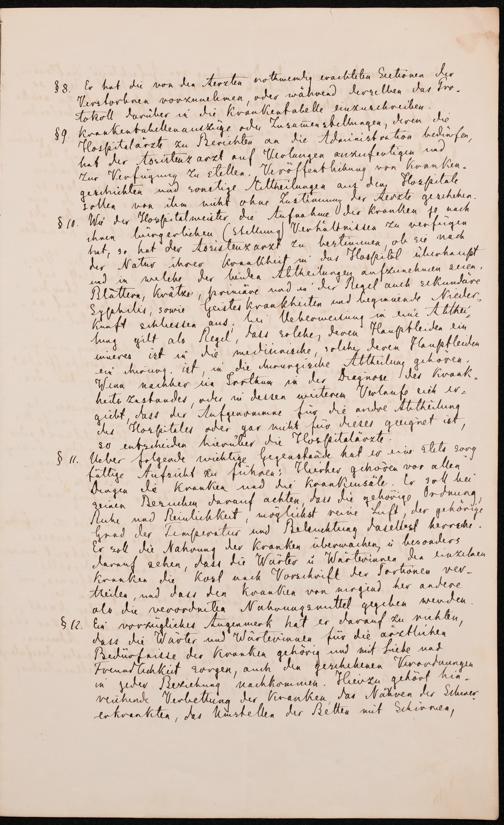 § 8. Er hat die von den Aerzten nothwendig erachteten Sectionen der
Verstorbnen vorzunehmen, oder während derselben das Pro-
tokoll darüber in die Krankentabelle einzuschreiben.
§ 9. Krankentabellenauszüge oder Zusammenstellungen, deren die
Hospitalärzte zu Berichten an die Administration bedürfen,
hat der Assistenzarzt auf Verlangen anzufertigen und
zur Verfügung zu stellen. Veröffentlichung von Kranken-
geschichten und sonstige Mittheilungen aus dem Hospitale
sollen von ihm nicht ohne Zustimmung der Aerzte geschehen.
§ 10. Wie der Hospitalmeister die Aufnahme der Kranken je nach
ihren bürgerlichen (Stellung) Verhältnissen zu verfügen
hat, so hat der Assistenzarzt zu bestimmen, ob sie nach
der Natur ihrer Krankheit in das Hospital überhaupt
und in welche der beiden Abtheilungen aufzunehmen seien.
Blattern, Krätze, primäre und in der Regel auch sekundäre
Syphilis, sowie Geisteskrankheiten und beginnende Nieder-
kunft schliessen aus; bei Ueberweisung in eine Abthei-
lung gilt als Regel, dass solche, deren Hauptleiden ein
inneres ist in die medicinische, solche deren Hauptleiden
ein chirurg. ist, in die chirurgische Abtheilung gehören.
Wenn nachher ein Irrthum in der Diagnose des Krank-
heitszustandes, oder in dessen weiterem Verlaufe sich er-
giebt, dass der Aufgenommne für die andre Abtheilung
des Hospitales oder gar nicht für dieses geeignet ist,
so entscheiden hierüber die Hospitalärzte.
§ 11. Ueber folgende wichtige Gegenstände hat er eine stets sorg-
fältige Aufsicht zu führen: Hierher gehören vor allen
Dingen die Kranken und die Krankensäle. Er soll bei
seinen Besuchen darauf achten, dass die gehörige Ordnung,
Ruhe und Reinlichkeit, möglichst reine Luft, der gehörige
Grad der Temperatur und Beleuchtung daselbst herrsche.
Er soll die Nahrung der Kranken überwachen u. besonders
darauf sehen, dass die Wärter u Wärterinnen den einzelnen
Kranken die Kost nach Vorschrift der Portionen ver-
theilen, und dass den Kranken von nirgend her andere
als die verordneten Nahrungsmittel gegeben werden.
§ 12. Ein vorzügliches Augenmerk hat er darauf zu richten,
dass die Wärter und Wärterinnen für die ärztlichen
Bedürfnisse der Kranken gehörig und mit Liebe und
Freundlichkeit sorgen, auch den geschehenen Verordnungen
in jeder Beziehung nachkommen. Hierzu gehört hin-
reichende Verbettung der Kranken, das Nähren der Schwer-
erkrankten, das Umstellen der Betten mit Schirmen,